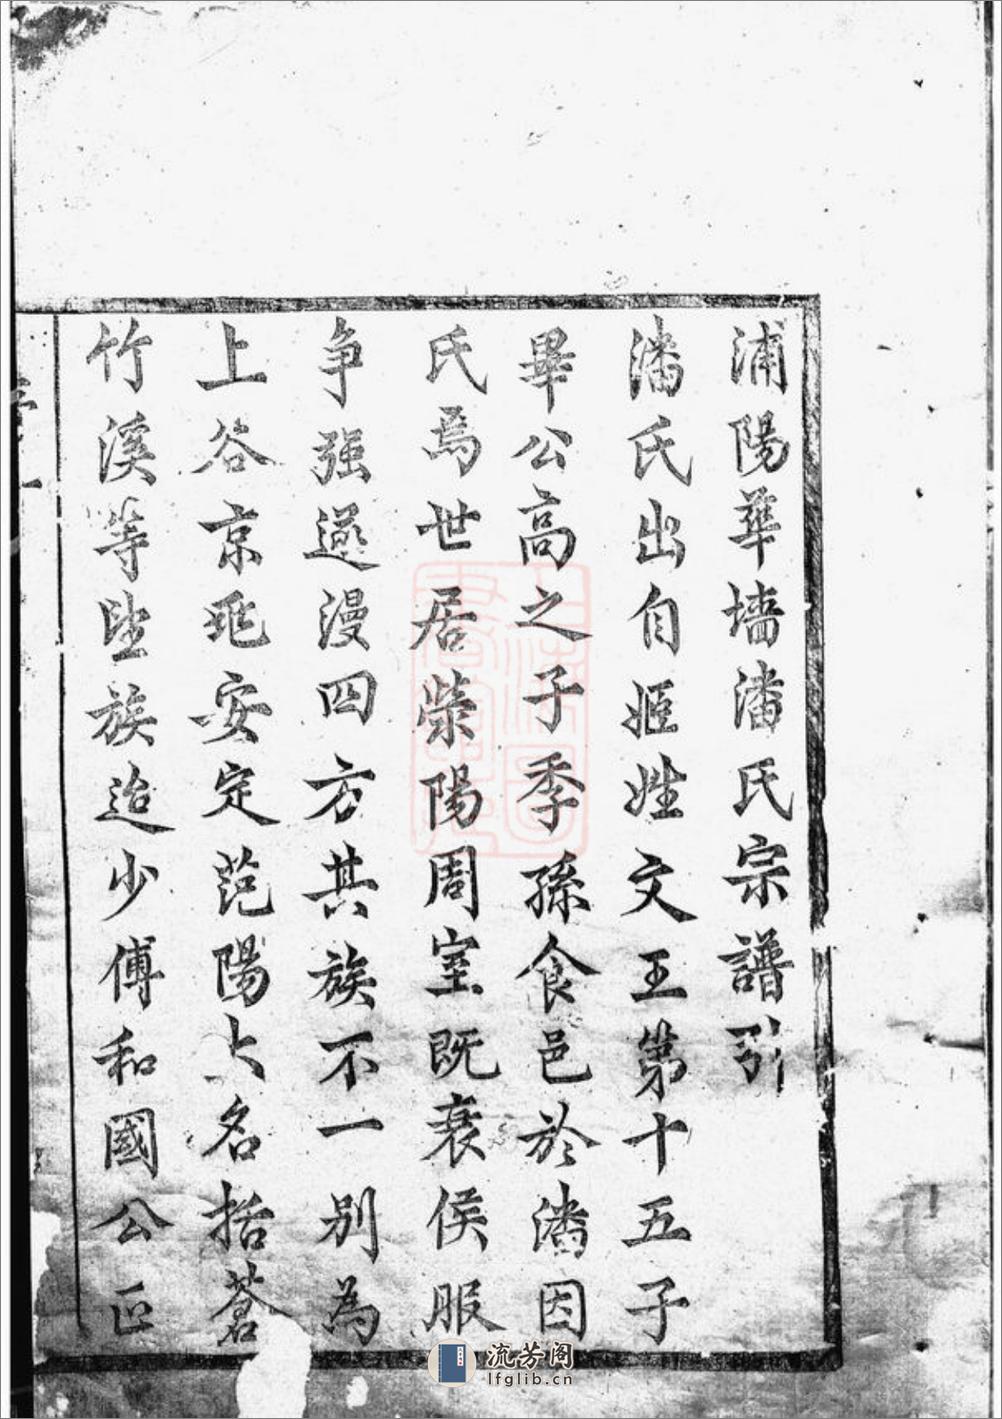 浦陽華墻潘氏宗譜引
潘氏出自姬姓文王第十五子
畢公高之子季孫食邑於潘因
氏焉世居滎陽周室既衰侯服
争强遂漫四方其族不一别為
上谷京兆安定范陽大名括蒼
竹溪等望族迨少傅和國公正
流芳阁
lfglib.cn